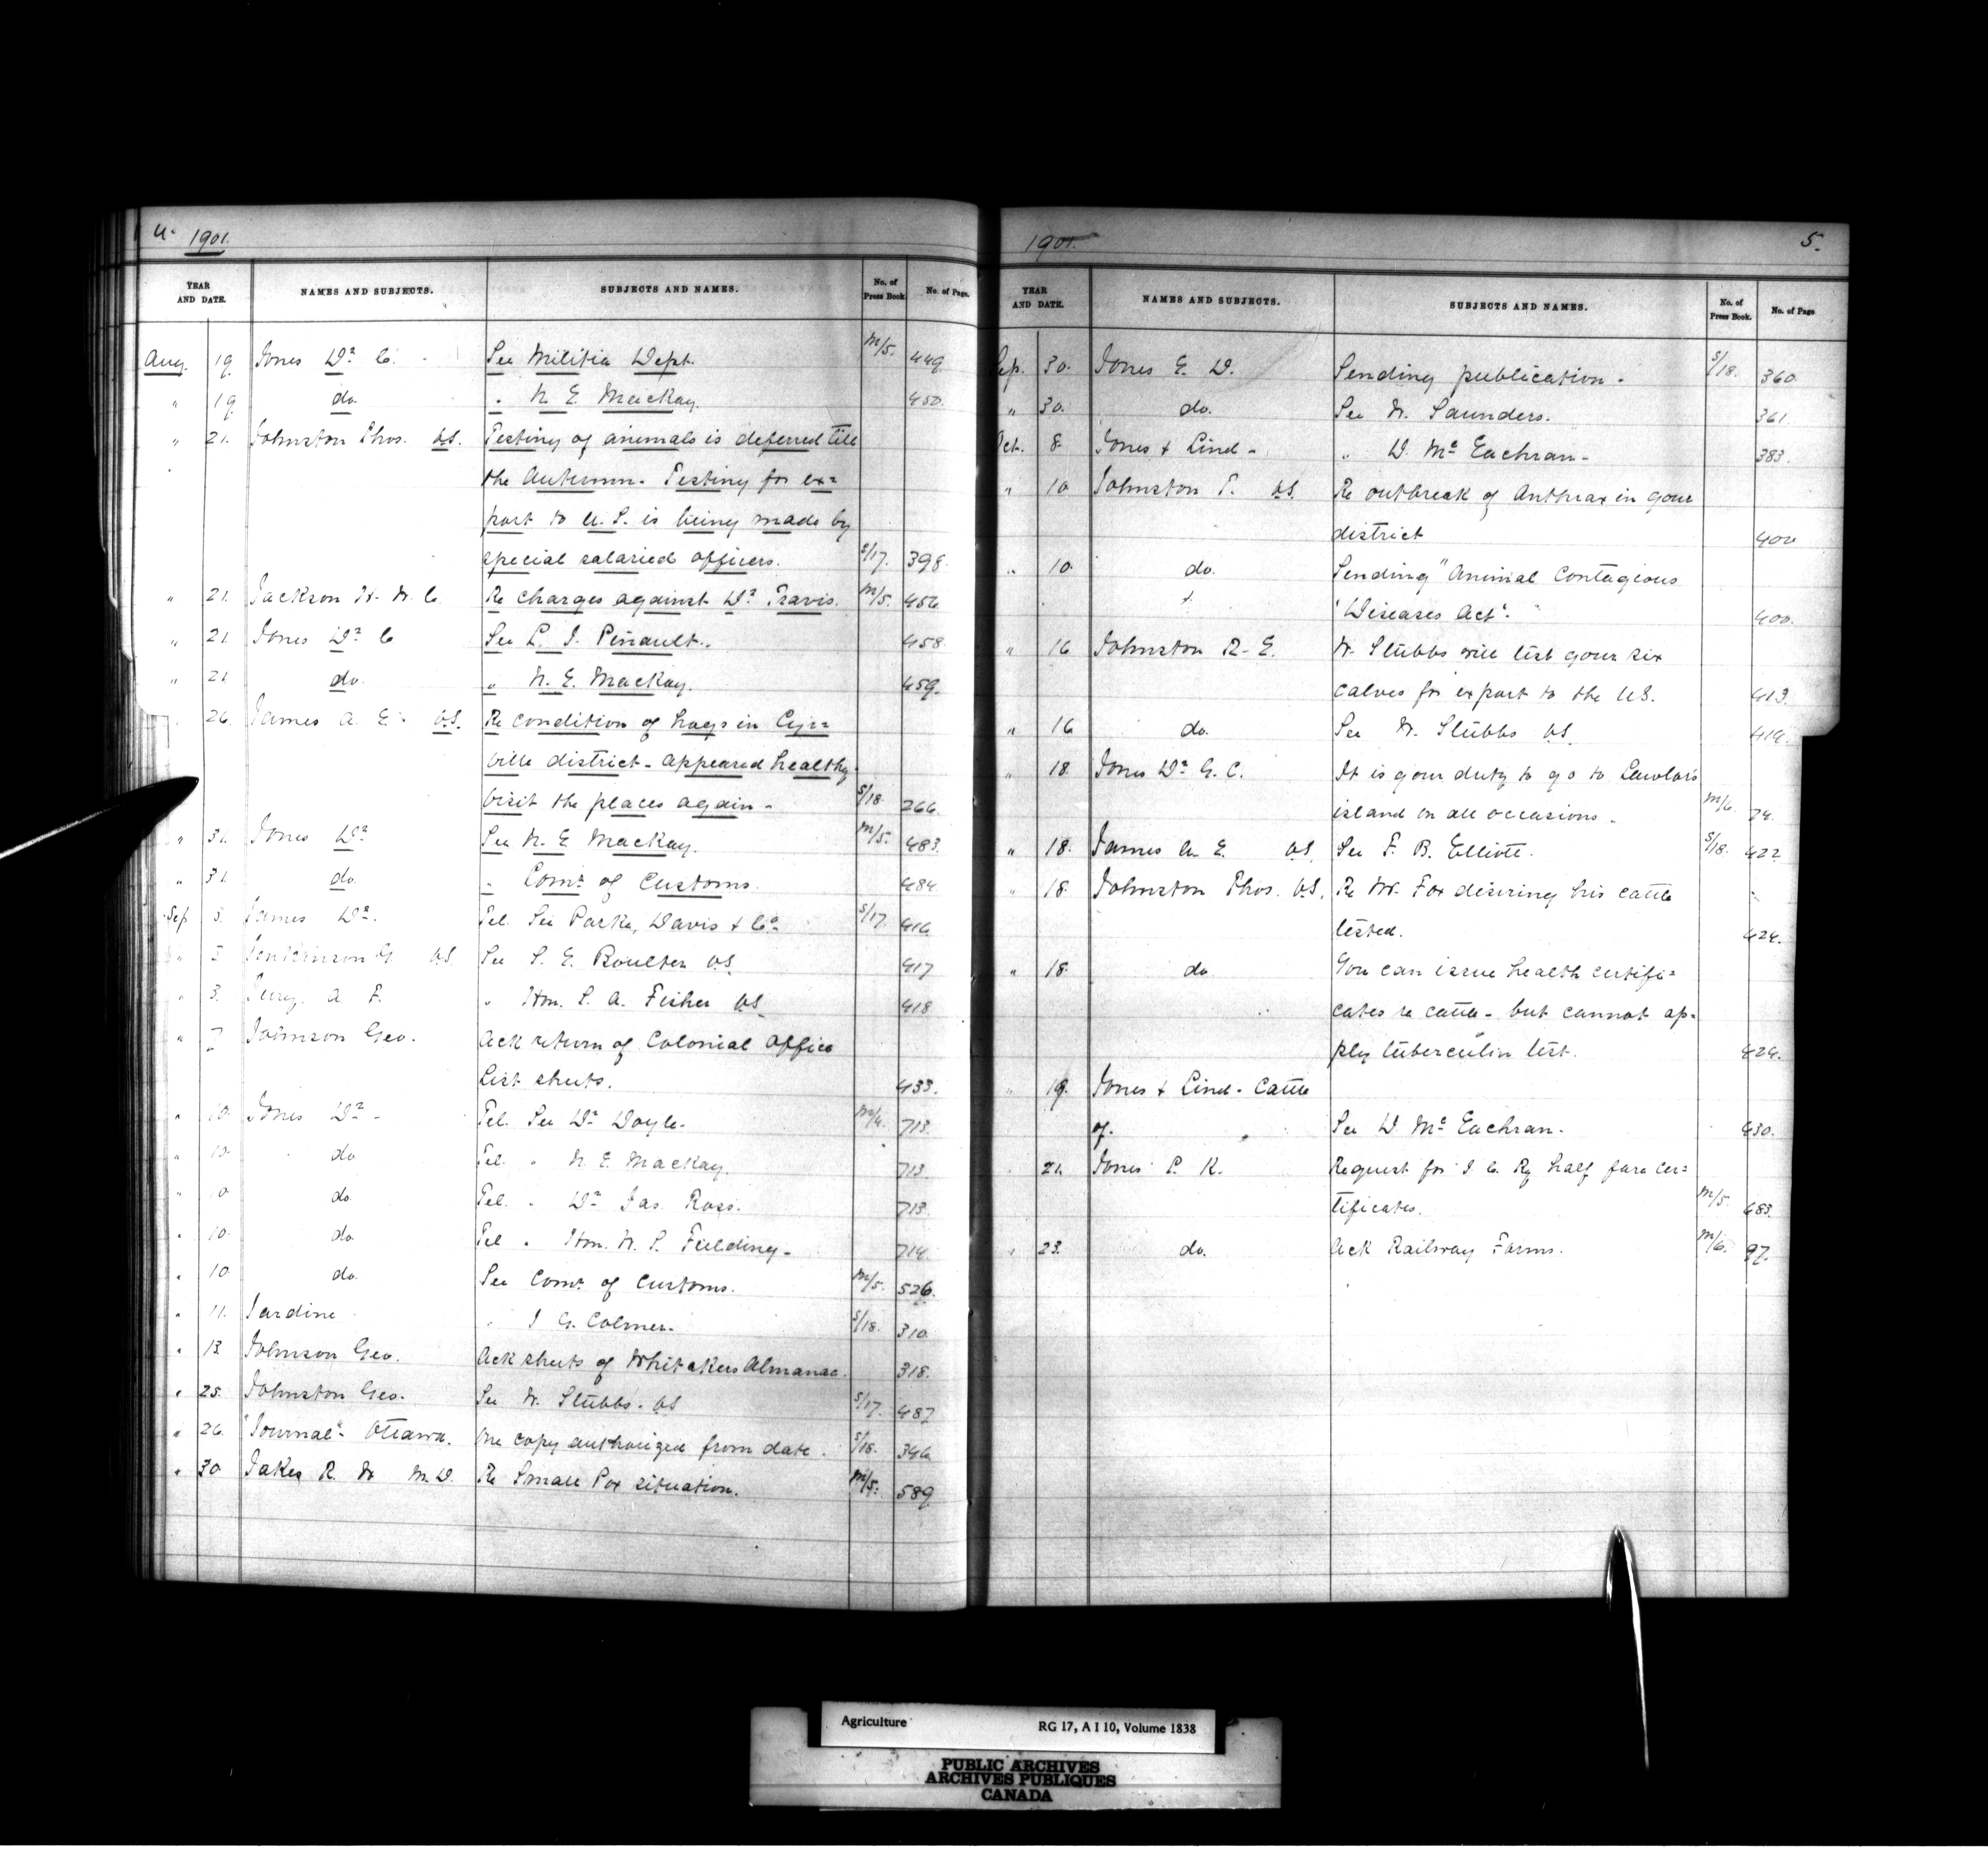 4. 1901.
YEAR AND DATE. NAMES AND SUBJECTS. SUBJECTS AND NAMES. No. of Press Book. No. of Page.
Aug. 19 Jones Dr. C. See Militia Dept. M/5. 449
" 19 do. " N. E. MacKay. 450.
" 21. Johnston Thos. V.S. Testing of animals is deferred till
the Autumn. Testing for ex=
port to U.S. is being made by
special salaried officers. S/17. 398
" 21. Jackson H. W. C. Re charges against Dr. Travis. M/5. 456
" 21. Jones Dr. C See L. J. Pinault. 458
" 21 do. " N. E. MacKay. 459.
26. James A. E. V.S. Re condition of hogs in
ville district - appeared healthy
visit the places again - S/18. 266.
" 31. Jones Dr. See N. E. MacKay. M/5. 483.
" 31. do. " Comr. of Customs. 484.
Sep 3. James Dr. Tel. See Parke, Davis & Co. S/17. 416
" 3 Jenkinson G V.S. See S. E. Boulter V.S. 417
" 3. Jury. A. F. " Hon. S. A. Fisher V.S. 418
" 7 Johnson Geo. Ack return of Colonial Office
List sheets. 433.
" 10. Jones Dr. - Tel. See Dr. Doyle. 713.
" 10. do Tel. " N. E. MacKay. 713.
" 10 do. Tel. " Dr. Jas. Ross. 713.
" 10. do. Tel " Hon. W. S. Fielding - 714.
" 10 do. See Comr. of Customs. M/5. 526.
" 11. Jardine " J. G. Colmer. S/18. 310.
" 13. Johnson Geo. Ack sheets of Whitakers Almanac. 318.
" 25. Johnston Geo. See W. Stubbs. V.S S/17. 487
" 26. "Journal" Ottawa. One copy authorized from date. S/18. 346
" 30. Jakes R. W M.D. Re Small Pox situation. M/5. 589
1901. 5.
YEAR AND DATE. NAMES AND SUBJECTS. SUBJECTS AND NAMES. No. of Press Book. No. of Page
Sep. 30. Jones E. D. Sending publication. S/18. 360.
" 30. do. See W. Saunders. 361.
Oct. 8 Jones & Lind - " D. Mc Eachran - 383.
" 10 Johnston T. V.S. Re outbreak of Anthrax in your
district 400
" 10. do. Sending "Animal Contagious
"Diseases Act". 400.
" 16 Johnston R. E. W. Stubbs will test your six
calves for export to the U.S. 413.
" 16 do. See W. Stubbs V.S. 414.
" 18 Jones Dr. G. C. It is your duty to go to Lawlor's
island on all occasions. M/6. 74.
" 18. James A. E. V.S. See F. B. Elliott. S/18. 422
" 18. Johnston Thos. V.S. Re Mr. Fox desiring his cattle
tested. 424.
" 18 do You can issue health certifi=
cates re cattle - but cannot ap=
ply tuberculin test. 424.
" 19. Jones & Lind - Cattle
of. See D Mc Eachran. 430.
21. Jones P. K. Request for I. C. Ry half fare cer=
tificates. M/5. 683.
" 23. do. Ack Railway Forms. M/6. 97.
Agriculture RG 17, A I 10, Volume 1838
PUBLIC ARCHIVES
ARCHIVES PUBLIQUES
CANADA